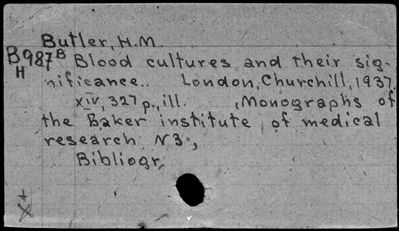 Butler, H.M.
B987B Blood cultures and their sig-
H
nificance.. London, Churchill, 1937
xiv, 327 p., ill. , Monographs of
the Baker institute of medical
research N3.,
Bibliogr.
x+